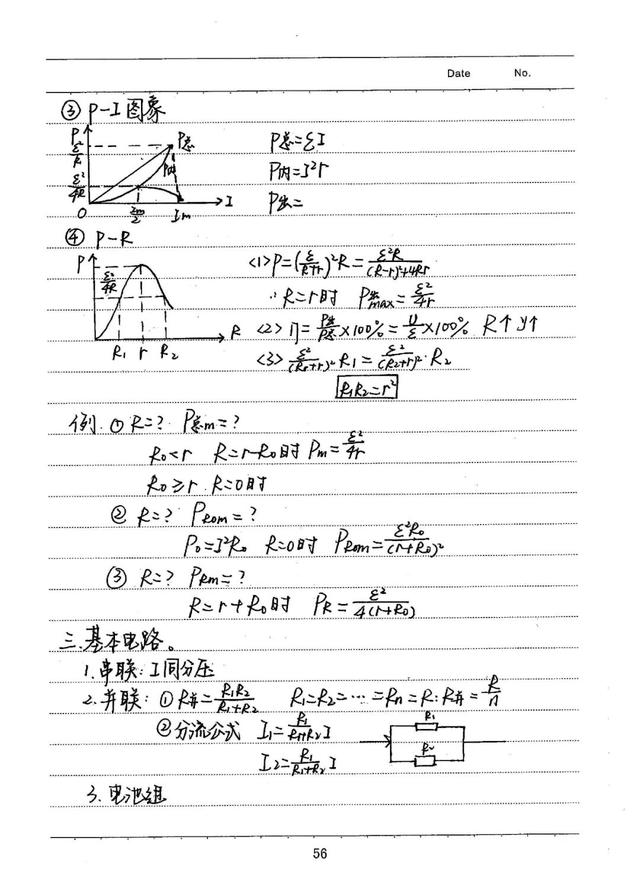 Date No.
③ P-I 图象
P
ε²/R
ε²/4R
O
Im/2
Im
I
P总
P内
P总=εI
P内=I²r
P出=
④ P-R
P
ε²/4R
R₁ r R₂
R
<1>P=(ε/(R+r))²R=ε²R/((R-r)²+4Rr)
∴R=r时 P出max=ε²/4r
<2> η=P出/P总×100%=U/ε×100% R↑ η↑
<3> ε²/(R₁+r)²·R₁=ε²/(R₂+r)²·R₂
R₁R₂=r²
例. ① R=? P总m=?
R₀<r R=r-R₀时 Pm=ε²/4r
R₀≥r R=0时
② R=? PR₀m=?
P₀=I²R₀ R=0时 PR₀m=ε²R₀/(r+R₀)²
③ R=? PRm=?
R=r+R₀时 PR=ε²/4(r+R₀)
三.基本电路。
1.串联:I同分压
2.并联:①R并=R₁R₂/(R₁+R₂) R₁=R₂=…=Rn=R:R并=R/n
②分流公式 I₁=R₁/(R₁+R₂)I
R₁
R₂
I₂=R₁/(R₁+R₂)I
3.电池组
56